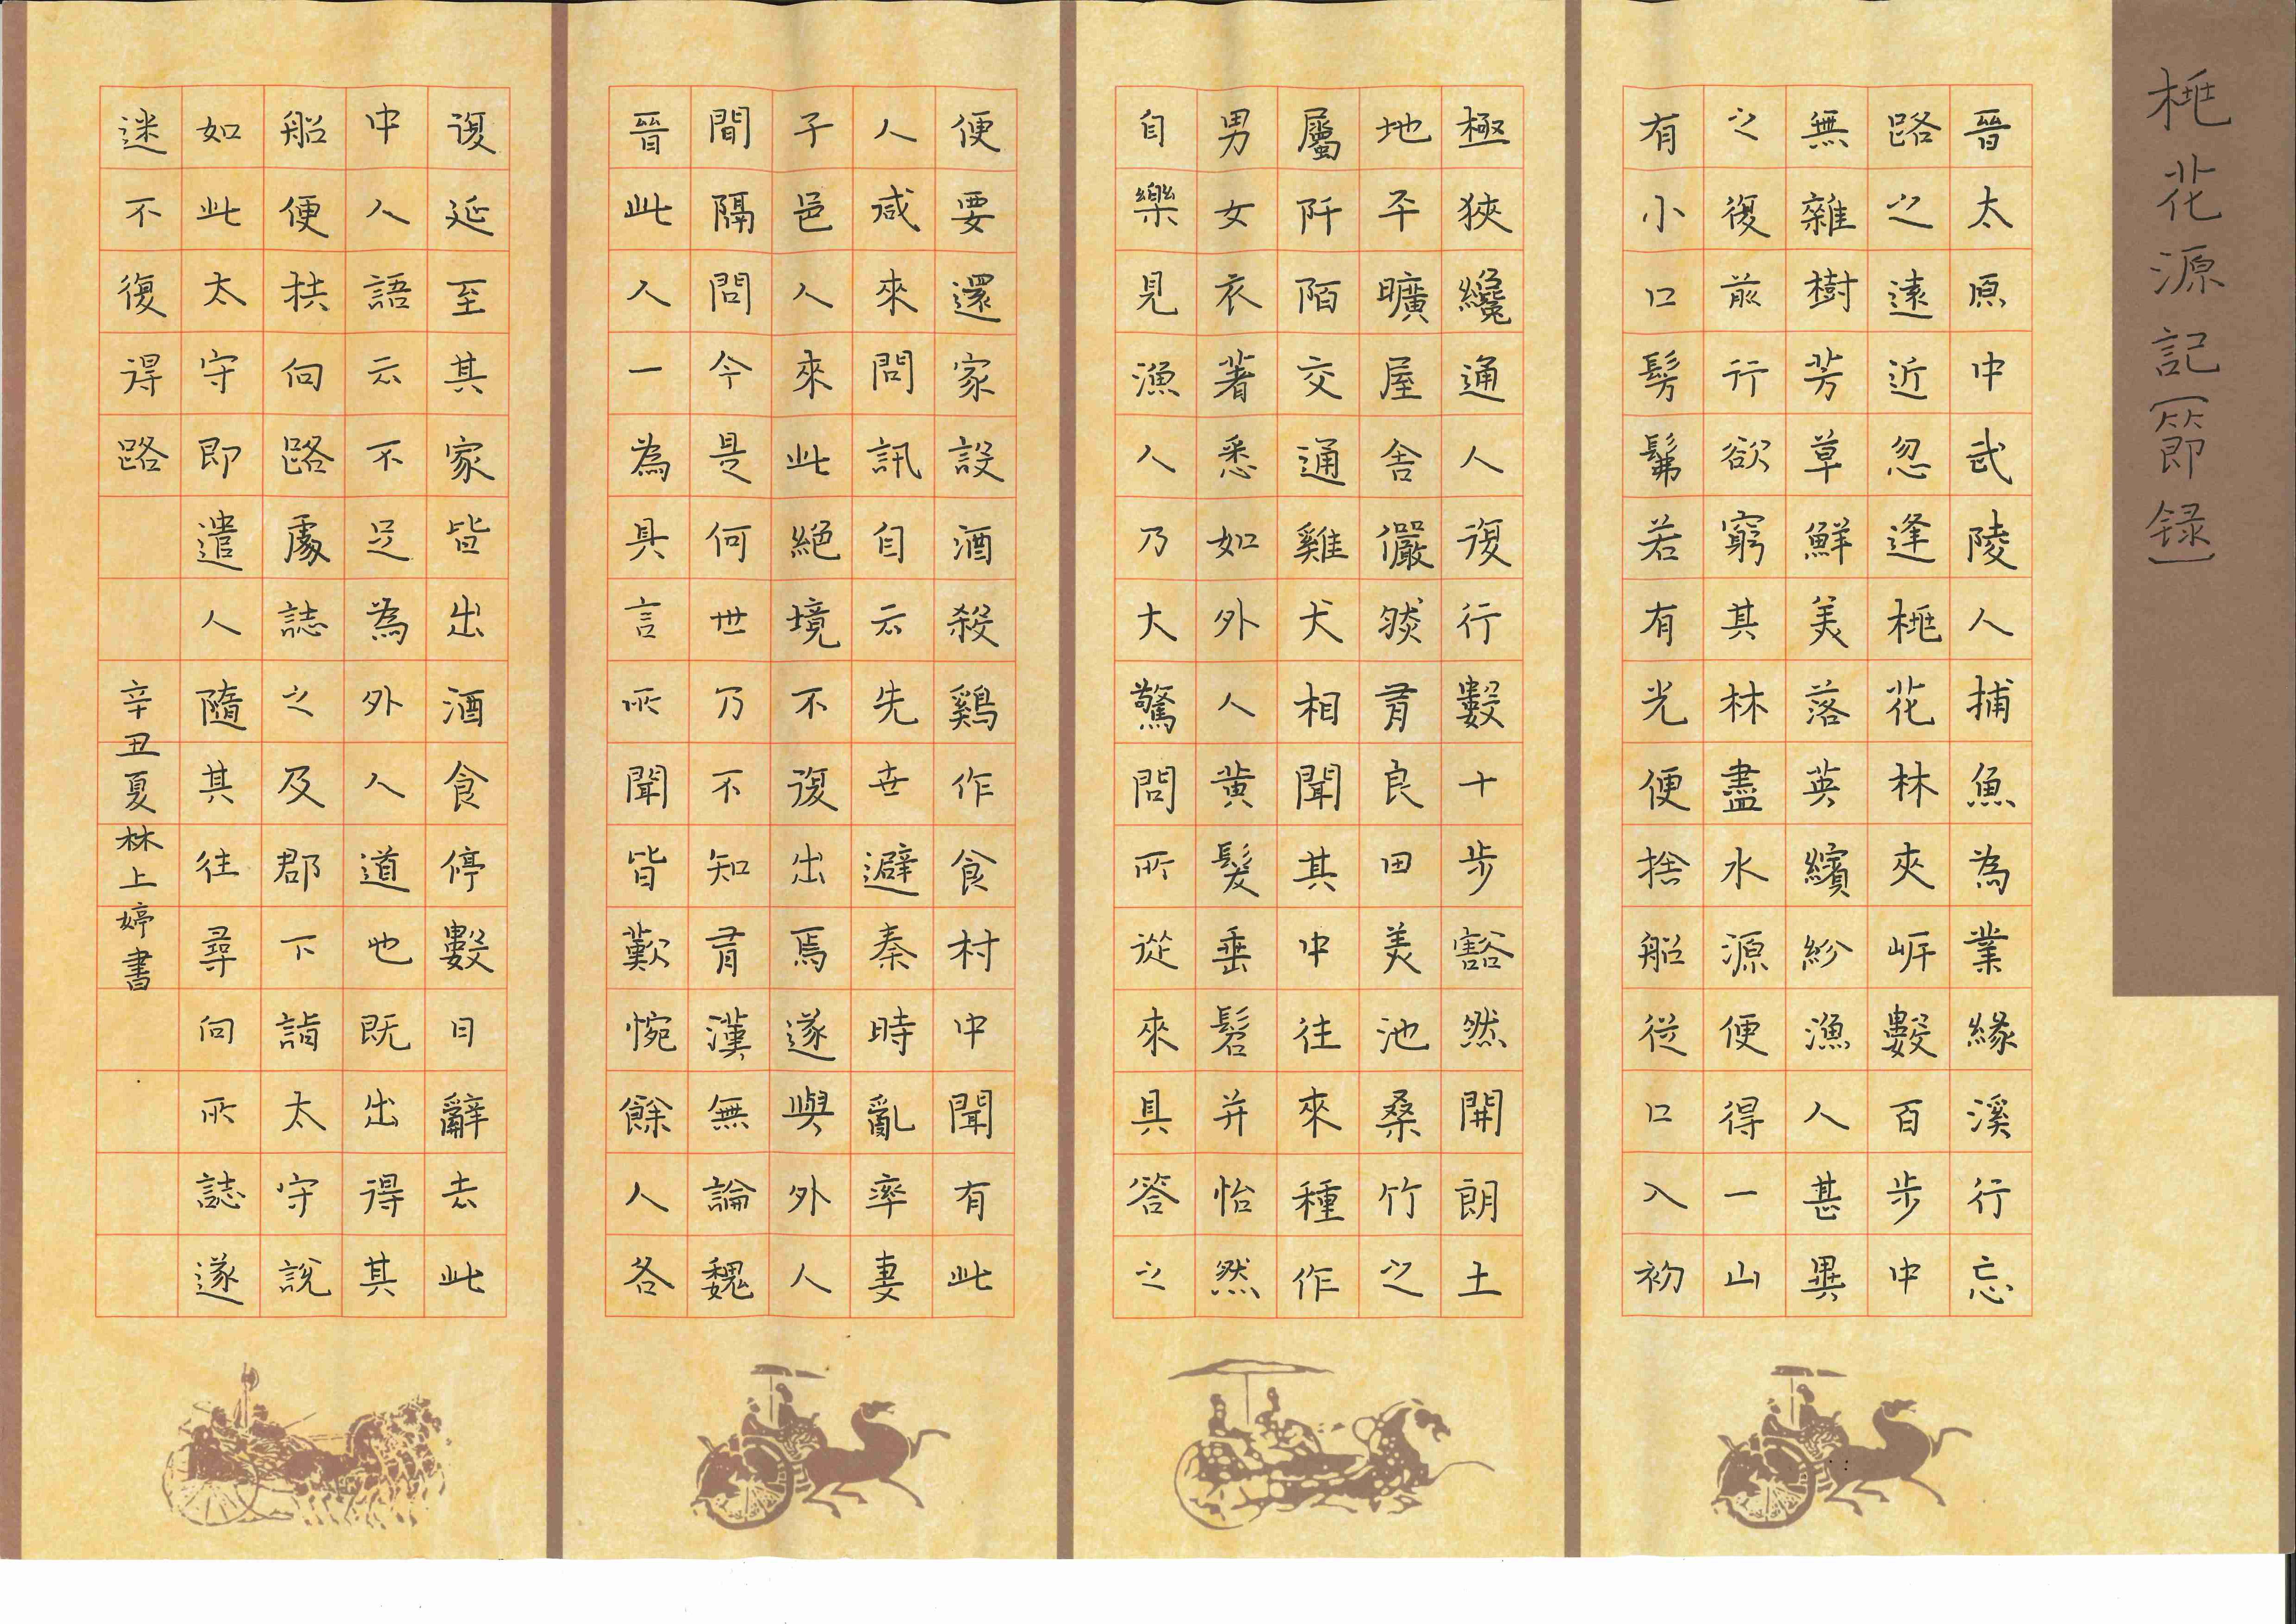 桃花源記(節録)
晉太原中武陵人捕魚為業緣溪行忘
路之遠近忽逢桃花林夾岍數百步中
無雜樹芳草鮮美落英繽紛漁人甚異
之復前行欲窮其林林盡水源便得一山
有小口髣髴若有光便捨船從口入初
極狹纔通人復行數十步豁然開朗土
地平曠屋舍儼然有良田美池桑竹之
屬阡陌交通雞犬相聞其中往來種作
男女衣著悉如外人黃髮垂髫并怡然
自樂見漁人乃大驚問所從來具答之
便要還家設酒殺鷄作食村中聞有此
人咸來問訊自云先世避秦時亂率妻
子邑人來此絕境不復出焉遂與外人
間隔問今是何世乃不知有漢無論魏
晉此人一為具言所聞皆歎惋餘人各
復延至其家皆出酒食停數日辭去此
中人語云不足為外人道也既出得其
船便扶向路處誌之及郡下詣太守說
如此太守即遣人隨其往尋向所誌遂
迷不復得路
辛丑夏林上婷書